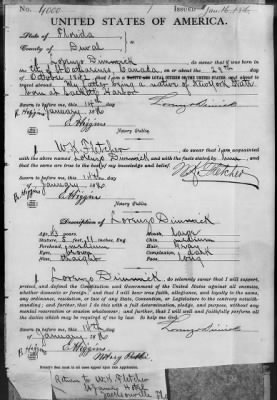 No. 4000 Issued Jan. 16, 1886
UNITED STATES OF AMERICA.
State of Florida
County of Duval
I, Lorenzo Dimmick, do swear that I was born in
St. Catharines, Canada, on or about the 28th day
of October 1842
that I am a NATIVE AND LOYAL CITIZEN OF THE UNITED STATES, and about to
travel abroad, My father being a native of New York State
born in Sackett Harbor
Sworn to before me, this 14th
of January 1886
E. Higgins
Notary Public.
Lorenzo Dimick
I, W K Fletcher, do swear that I am acquainted
with the above named Lorenzo Dimmick, and with the facts stated by him, and
that the same are true to the best of my knowledge and belief.
W K Fletcher
Sworn to before me, this 14th day
of January 1886
E. Higgins
Notary Public.
Description of Lorenzo Dimmick
Age, 43 years Mouth, large
Stature, 5 feet, 11 inches, Eng. Chin, medium
Forehead, medium Hair,
Eyes, brown Complexion, dark
Nose, straight Face,
I, Lorenzo Dimmick, do solemnly swear that I will support,
protect, and defend the Constitution and Government of the United States against all enemies,
whether domestic or foreign; and that I will bear true faith, allegiance, and loyalty to the same,
any ordinance, resolution, or law of any State, Convention, or Legislature to the contrary notwith-
standing; and further, that I do this with a full determination, pledge, and purpose, without any
mental reservation or evasion whatsoever; and further, that I will well and faithfully perform all
the duties which may be required of me by law. So help me God.
Sworn to before me, this 14th
of January 1886
E. Higgins
Notary Public
Lorenzo Dimick
Return to W K Fletcher
Jacksonville Fla